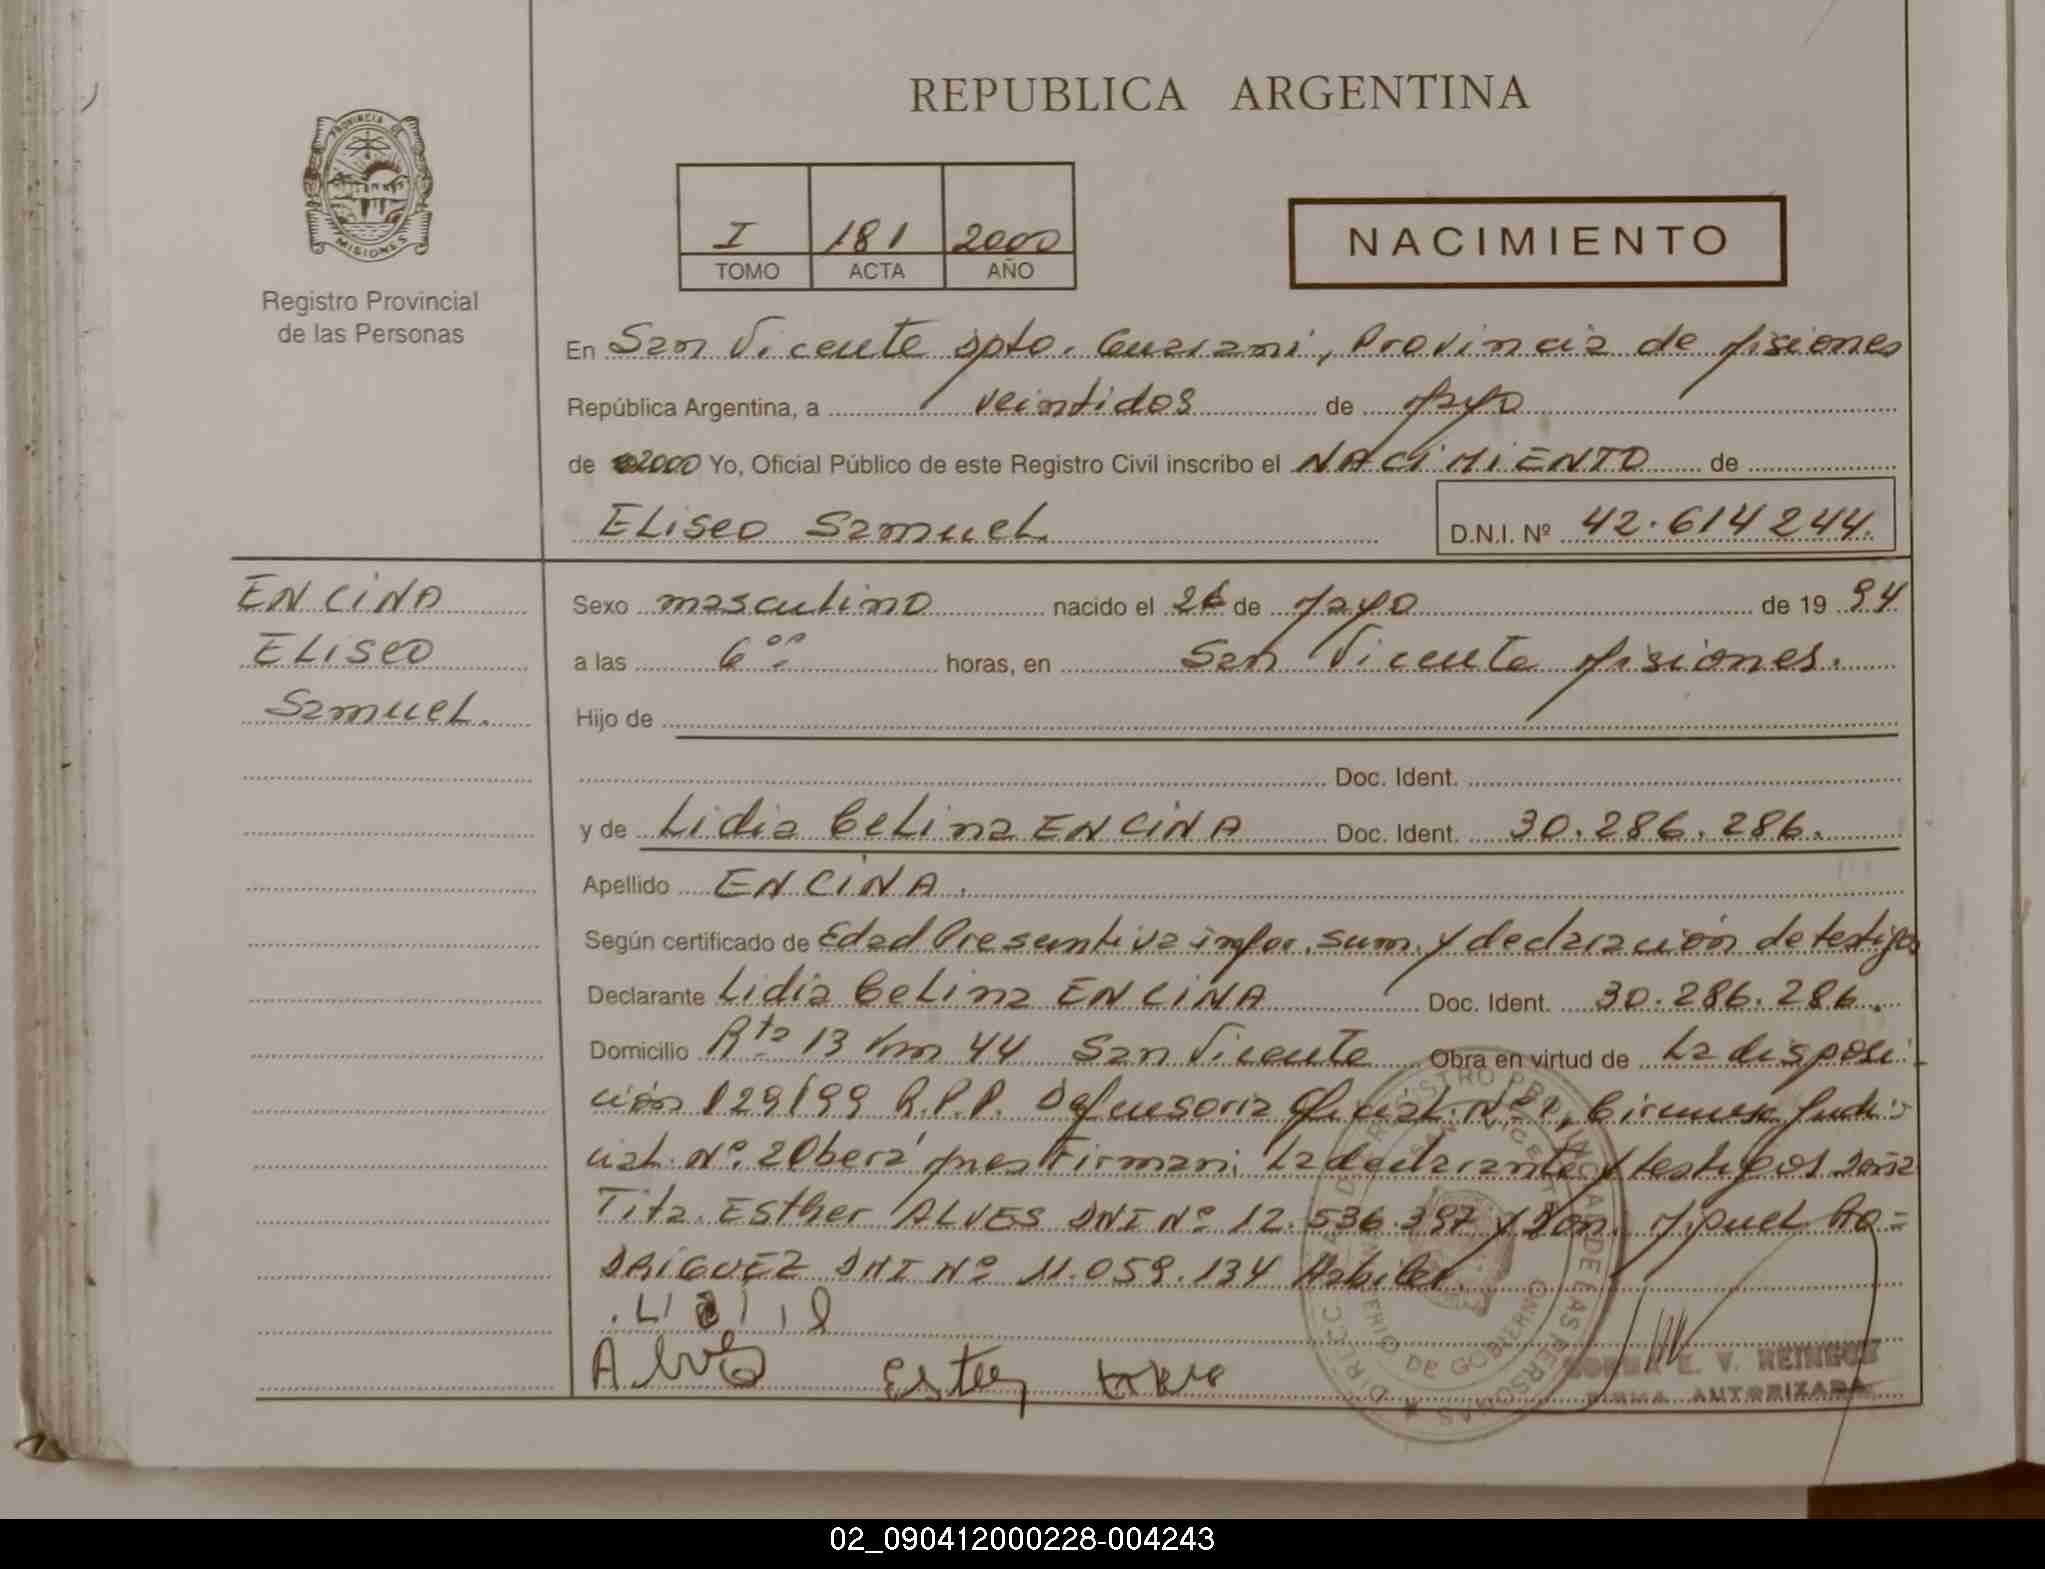 REPUBLICA ARGENTINA
PROVINCIA DE
MISIONES
I 181 2000
TOMO ACTA AÑO
NACIMIENTO
Registro Provincial
de las Personas
En San Vicente Dpto. Guarani, Provincia de Misiones
República Argentina, a veintidos de Mayo
de 2000 Yo, Oficial Público de este Registro Civil inscribo el NACIMIENTO de
ELiseo Samuel D.N.I. Nº 42.614244.
ENCINA
ELiseo
Samuel.
Sexo masculino nacido el 26 de Mayo de 19 94
a las 6 horas, en San Vicente Misiones.
Hijo de
Doc. Ident.
y de Lidia Celina ENCINA Doc. Ident. 30.286.286.
Apellido ENCINA.
Según certificado de Edad Presuntiva infor. sum. y declaración de testigos
Declarante Lidia Celina ENCINA Doc. Ident. 30.286.286.
Domicilio Rta 13 km 44 San Vicente Obra en virtud de La disposi-
ción 129/99 R.P.P. Defensoria Oficial Nº 1, Circunsc Judi-
cial Nº 2 Oberá Mnes Firman: La declarante y testigos Doña
Tita Esther ALVES DNI Nº 12.536.397 y Don Miguel RO=
DRIGUEZ DNI Nº 11.059.134 Habiles.
Alves Ester
REGISTRO PROVINCIAL DE LAS PERSONAS
SAN VICENTE
MINISTERIO DE GOBIERNO
E. V. REINEUZ
FIRMA AUTORIZADA
02_090412000228-004243